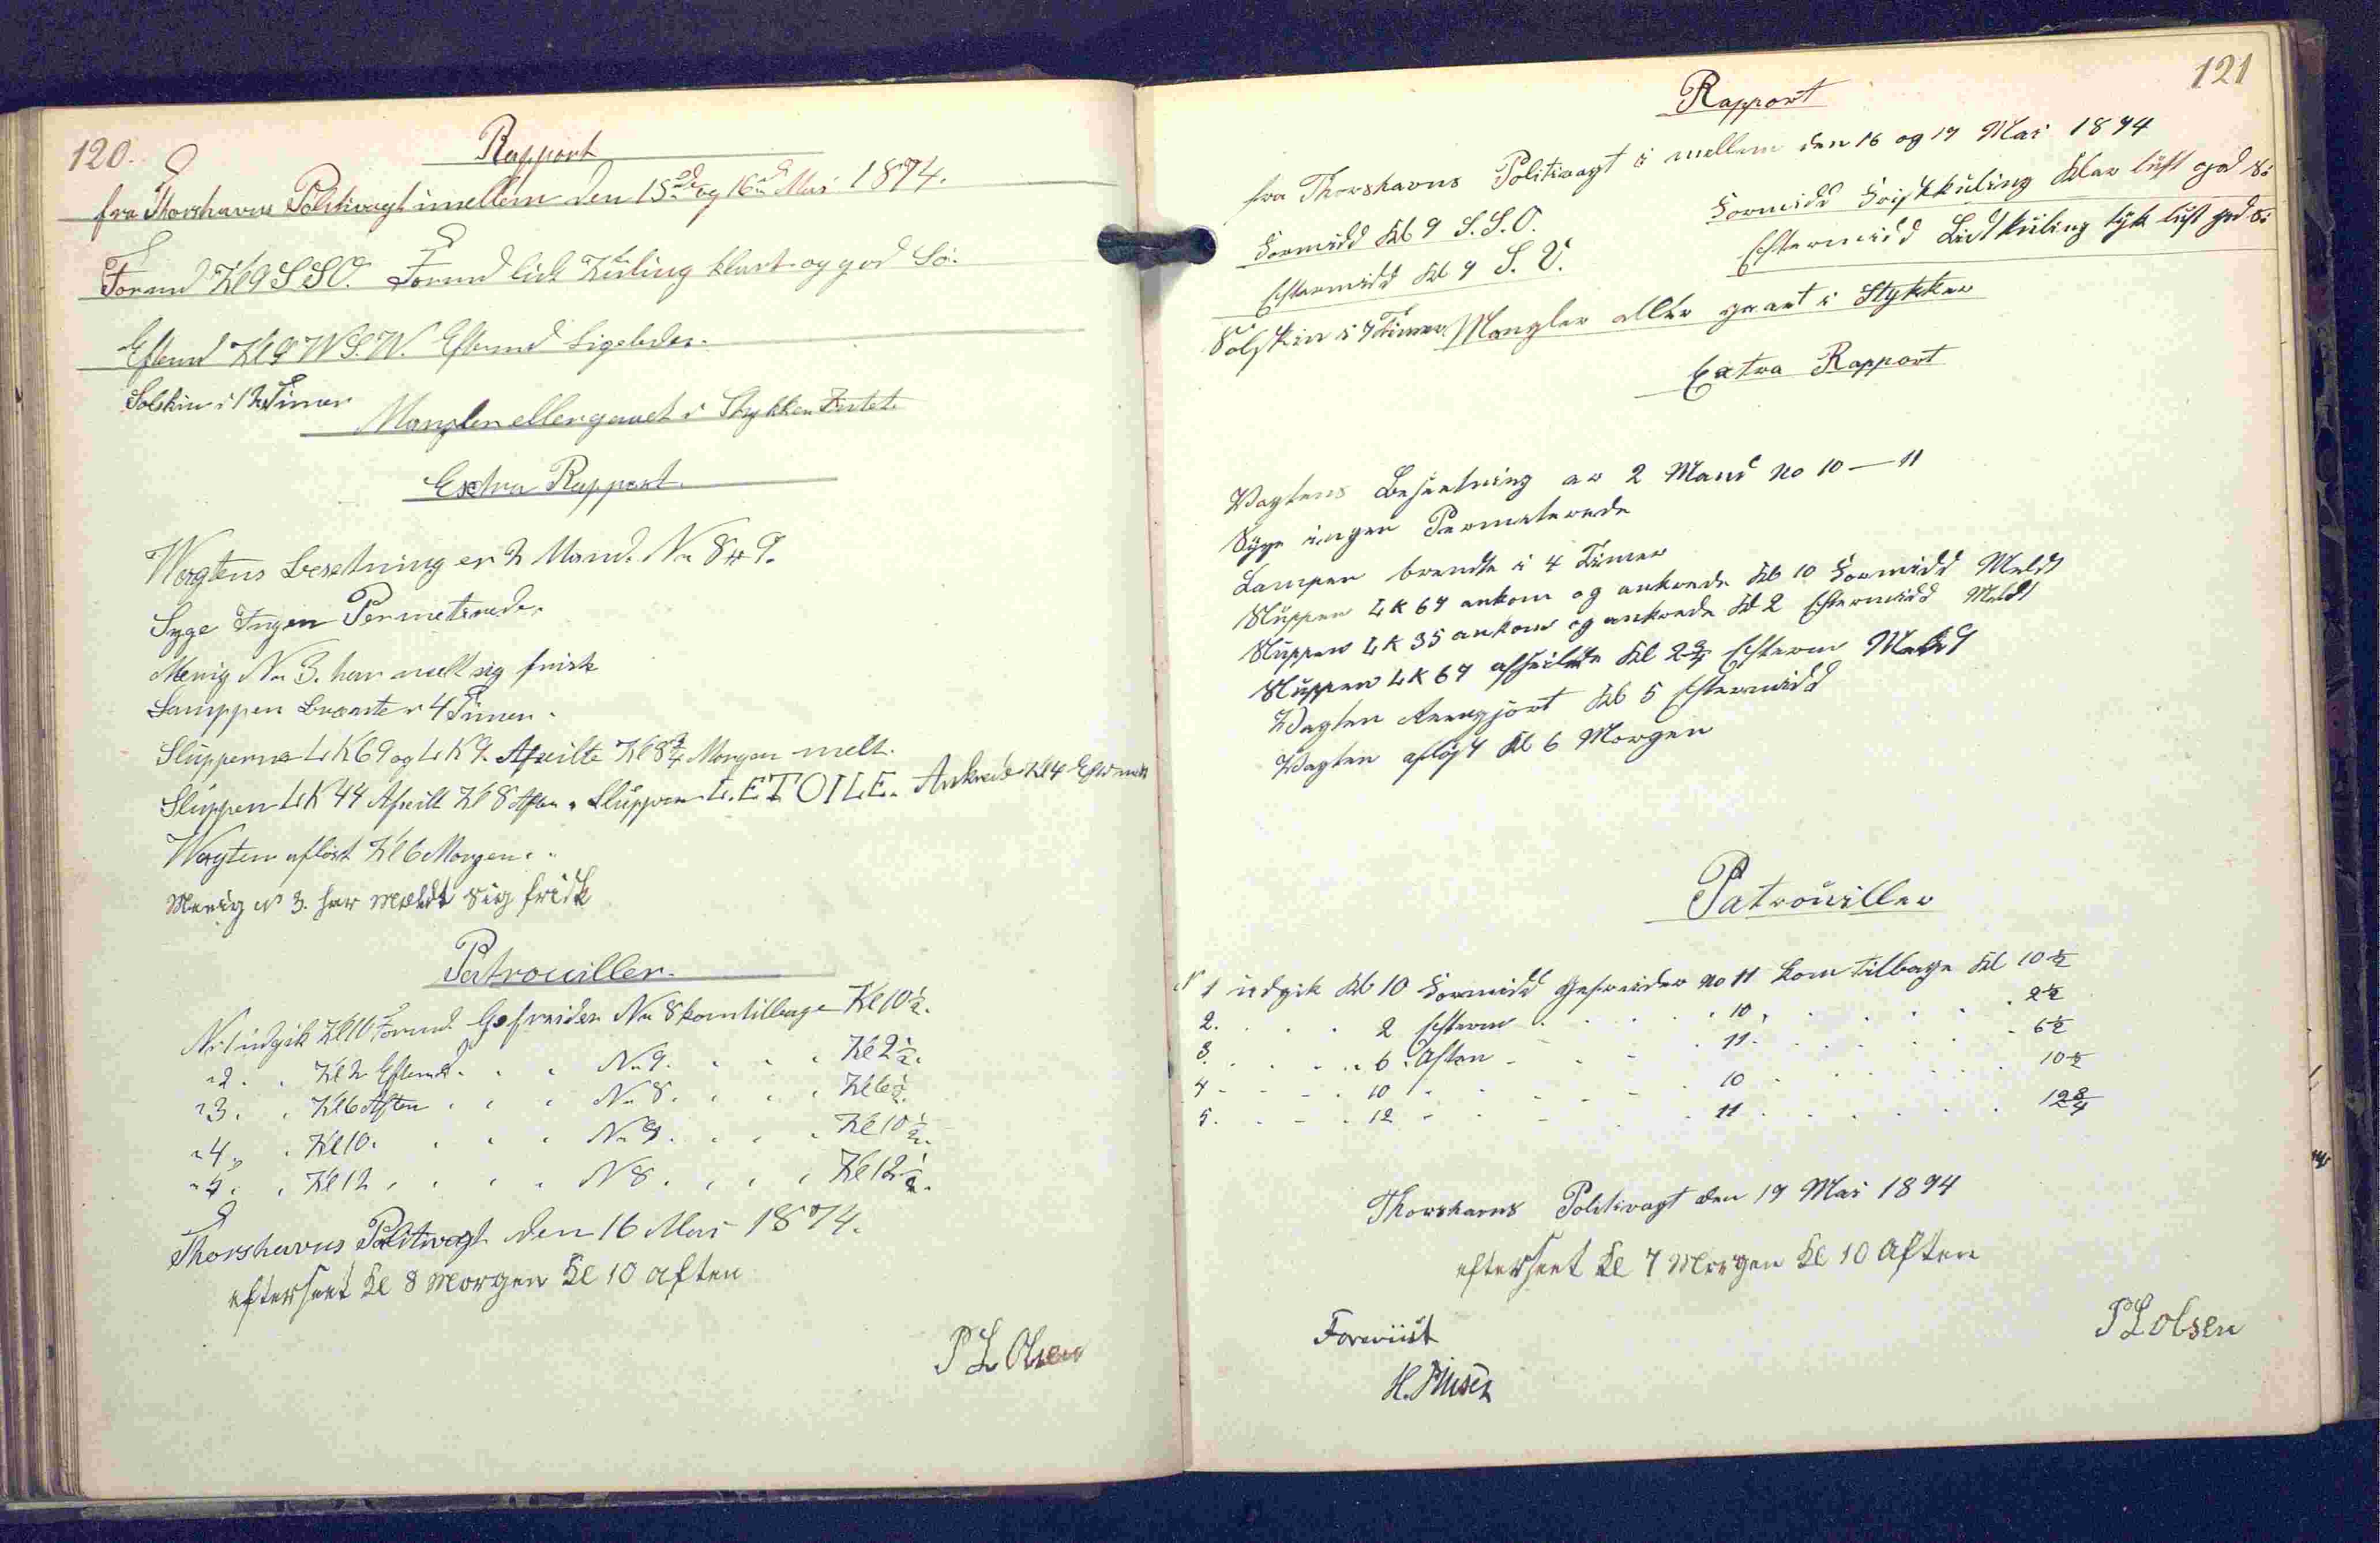 120.
Rapport
fra Thorshavns Politivagt imellem den 15de og 16de Mai 1874.
Formd Kl 9 S S O. Formd lidt Kuling klart og god Sö.
Eftmd Kl 9 W S. W. Eftmd Ligeledes.
Solskin i 12 Timer
Mangler eller gaaet i Stykker Intet.
Extra Rapport.
Wagtens Besetning er 2 Mand. No 8 & 9.
Syge Ingen Permeterede.
Menig No 3. har melt sig frisk
Lamppen Brænte i 4 Timer.
Slupperne LK 69 og LK 9. Afseilte Kl 8 3/4 Morgen melt.
Sluppen LK 44 Afseilt Kl 8 Aften. Sluppen L. ETOILE. Ankrede Kl 4 Eftermid
Wagten aflöst Kl 6 Morgen.
Menig N 3. har meldt sig frisk
Patrouiller.
No 1 udgik Kl 10 Formd. Gefreider No 8 kom tillbage Kl 10 1/2.
" 2. . Kl 2 Eftemd. . . No 9. . . . Kl 2 1/2.
" 3. . Kl 6 Aften . . . No 8. . . . Kl 6 1/2.
" 4. . Kl 10. . . . No 9. . . . Kl 10 1/2.
" 5. . Kl 12 . . . . N 8. . . . Kl 12 1/2.
Thorshavns Politivagt den 16 Mai 1874.
efterseet Kl 8 Morgen Kl 10 Aften
P L Olsen
121
Rapport
fra Thorshavns Politivagt i mellem den 16 og 17 Mai 1874
Formidd Kl 9 S. S. O. Formidd Friskkuling klar luft god Sö
Eftermidd Kl 9 S. V. Eftermidd Lidtkuling tyk luft god Sö
Solskin i 7 Timer. Mangler eller gaaet i Stykker
Extra Rapport
Vagtens Besætning er 2 Mand No 10 — 11
Syge ingen Permeterede
Lampen brendte i 4 Timer
Sluppen LK 67 ankom og ankrede Kl 10 Formidd Meldt
Sluppen LK 35 ankom og ankrede Kl 2 Eftermidd Meldt
Sluppen LK 67 afseilede Kl 2 3/4 Efterm Meldt
Vagten Reengjort Kl 5 Eftermidd
Vagten aflöst Kl 6 Morgen
Patrouiller
N 1 udgik Kl 10 Formidd Gefreider No 11 kom tilbage Kl 10 1/2
2. . . . 2 Efterm . . . . 10. . . . . 2 1/2
3. . . . 6 Aften . . . 11. . . . . 6 1/2
4 - - - . 10 . . - - . 10 . . . . . 10 1/2
5. - - . 12 - . - . 11 . . . . . 12 3/4
Thorshavns Politivagt den 17 Mai 1874
efterseet Kl 7 Morgen Kl 10 Aften
P L Olsen
Foreviist